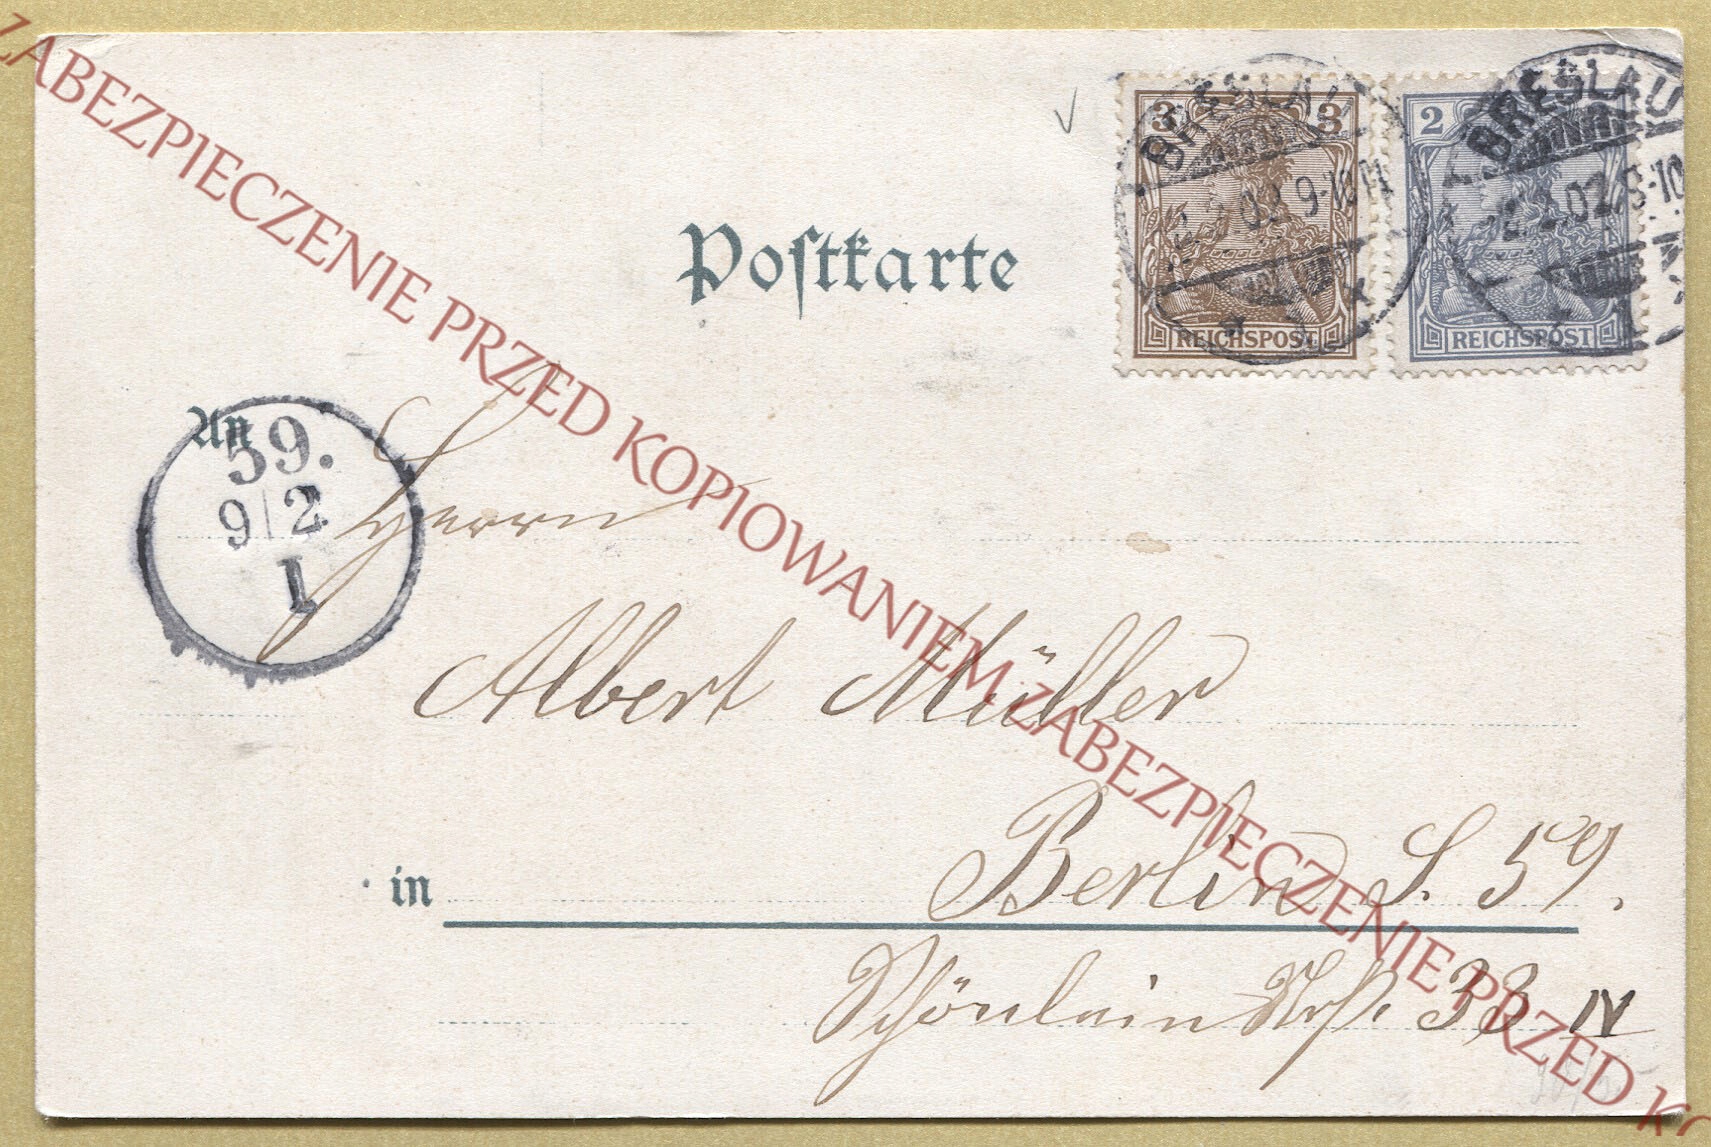 ZABEZPIECZENIE PRZED KOPIOWANIEM ZABEZPIECZENIE PRZED KO
3 3
BRESLAU
02 9-10
REICHSPOST
2
BRESLAU
02
REICHSPOST
Poſtkarte
An
59.
9/2
I
Herrn
Albert Müller
in Berlin S. 59.
Schönlein Str. 33 IV